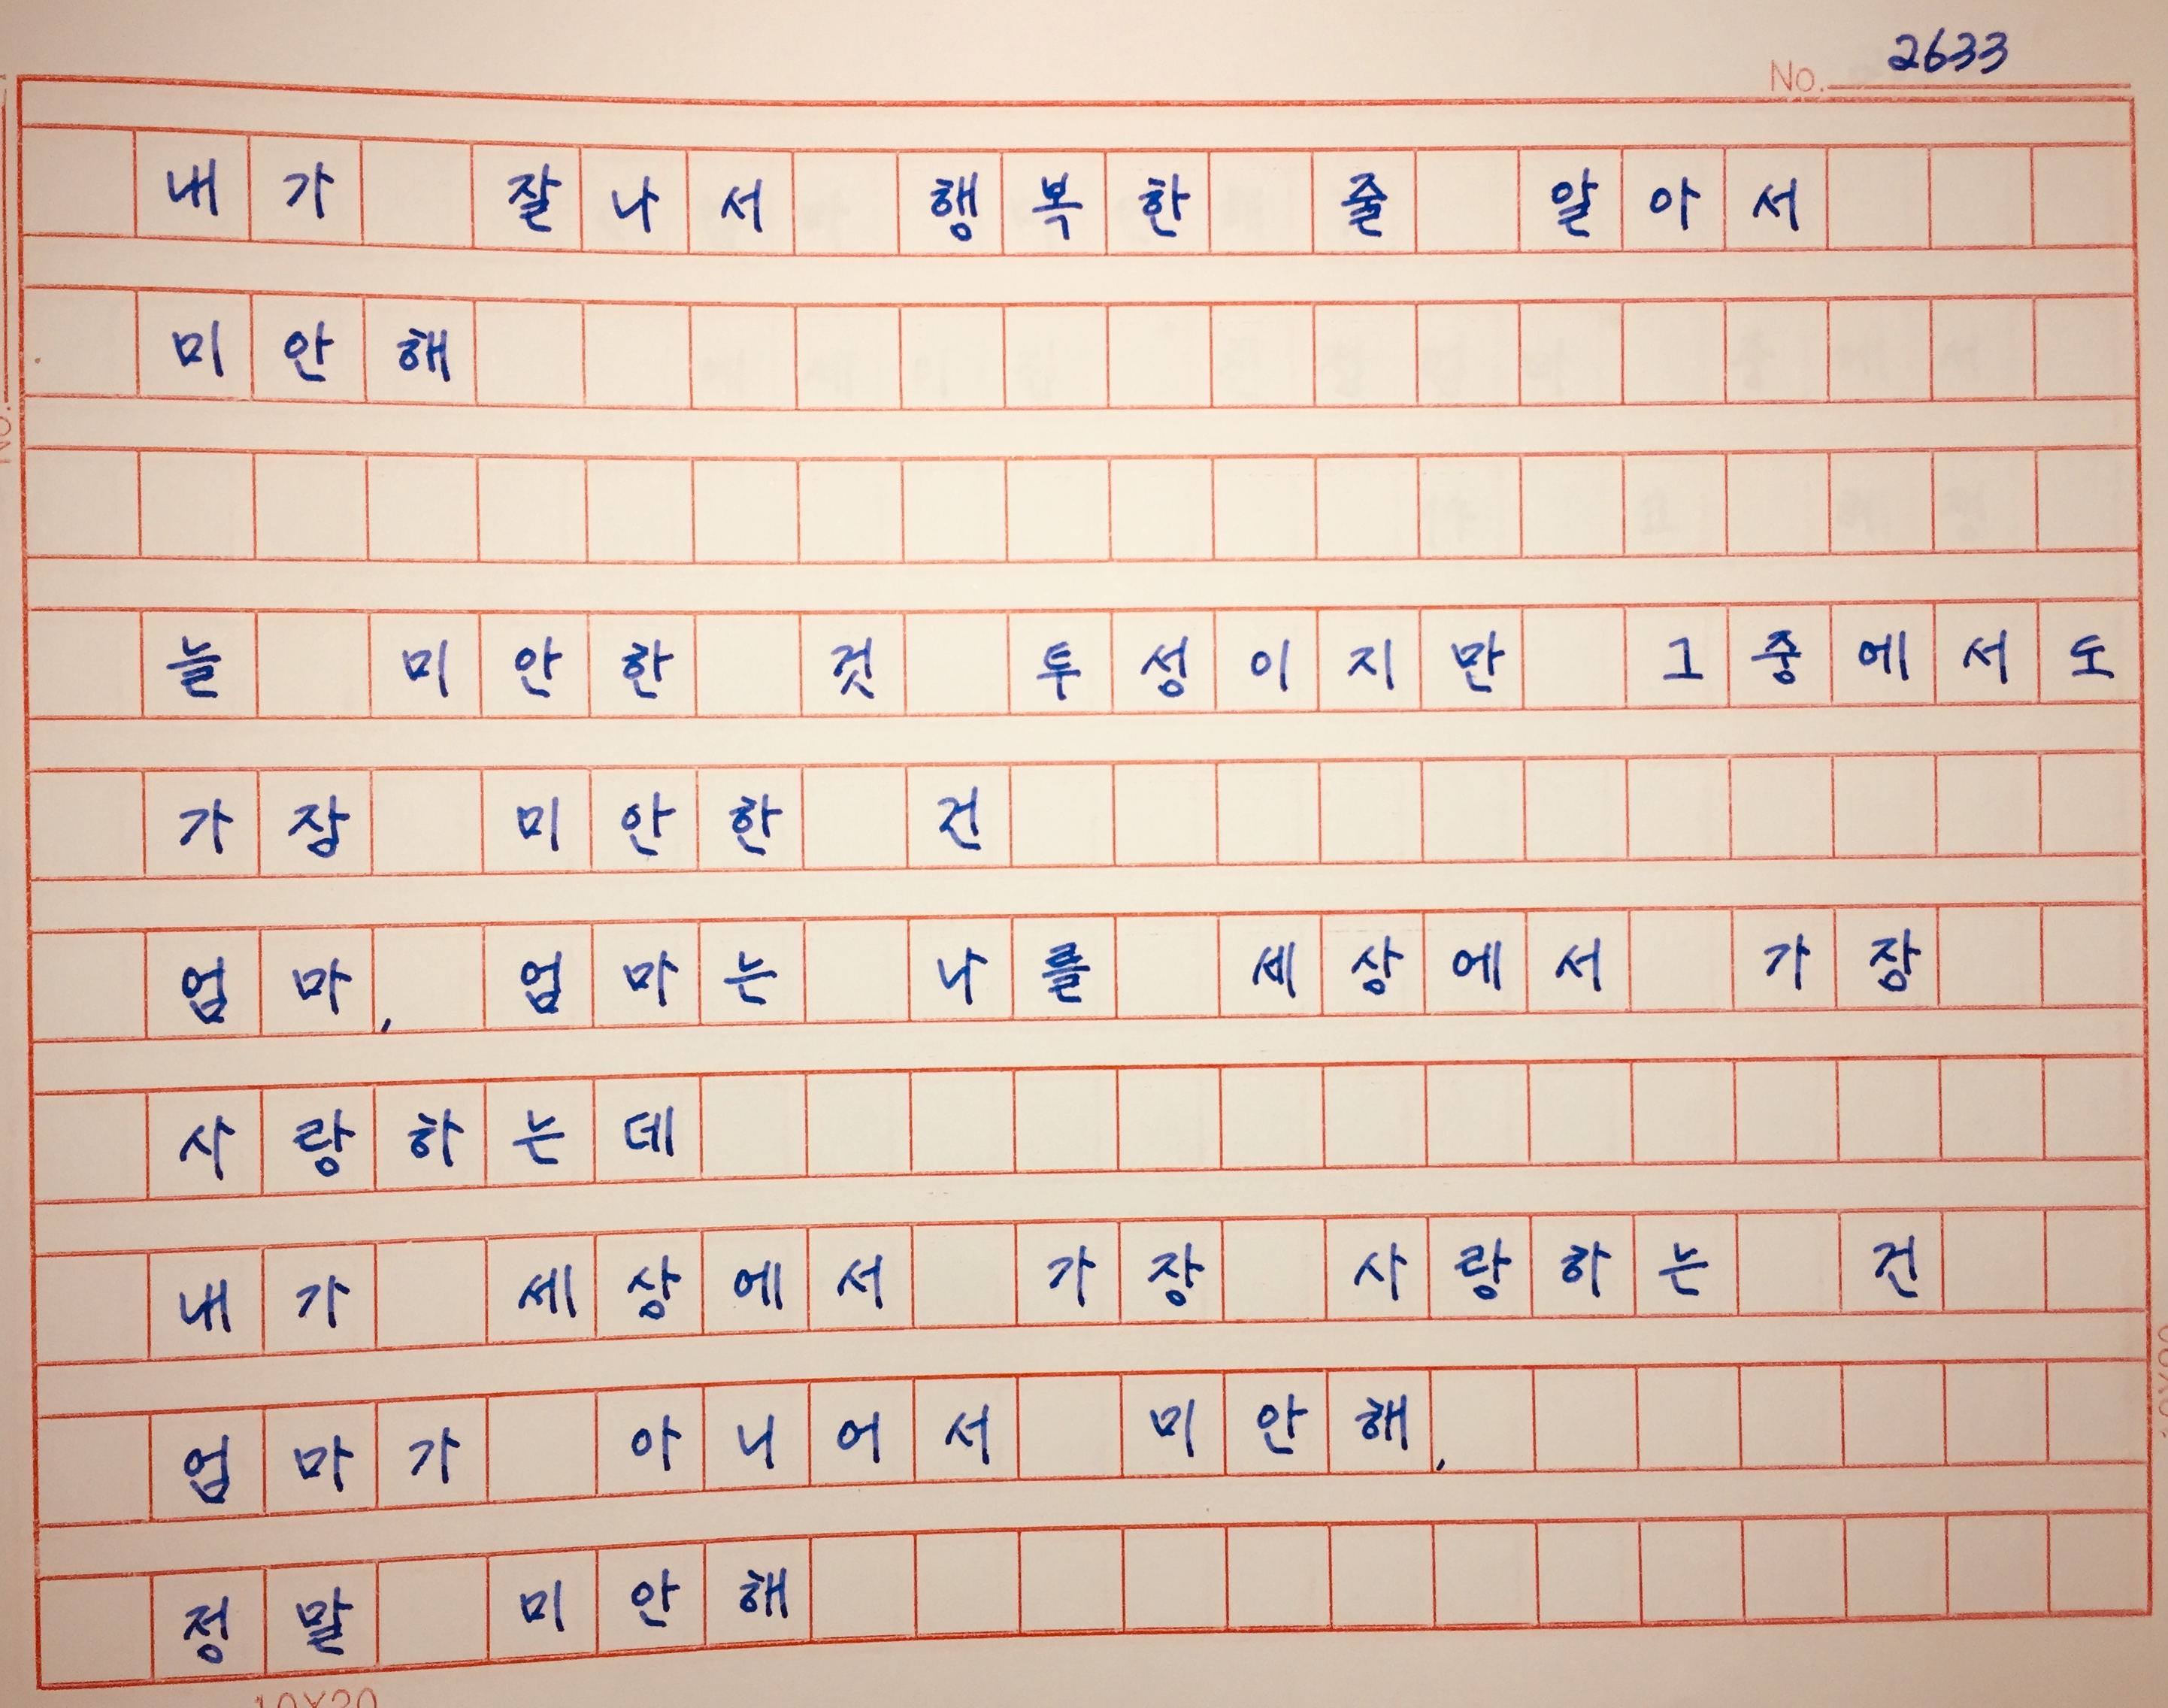 No. 2633
내가 잘나서 행복한 줄 알아서
미안해
늘 미안한 것 투성이지만 그중에서도
가장 미안한 건
엄마, 엄마는 나를 세상에서 가장
사랑하는데
내가 세상에서 가장 사랑하는 건
엄마가 아니어서 미안해,
정말 미안해
10X20